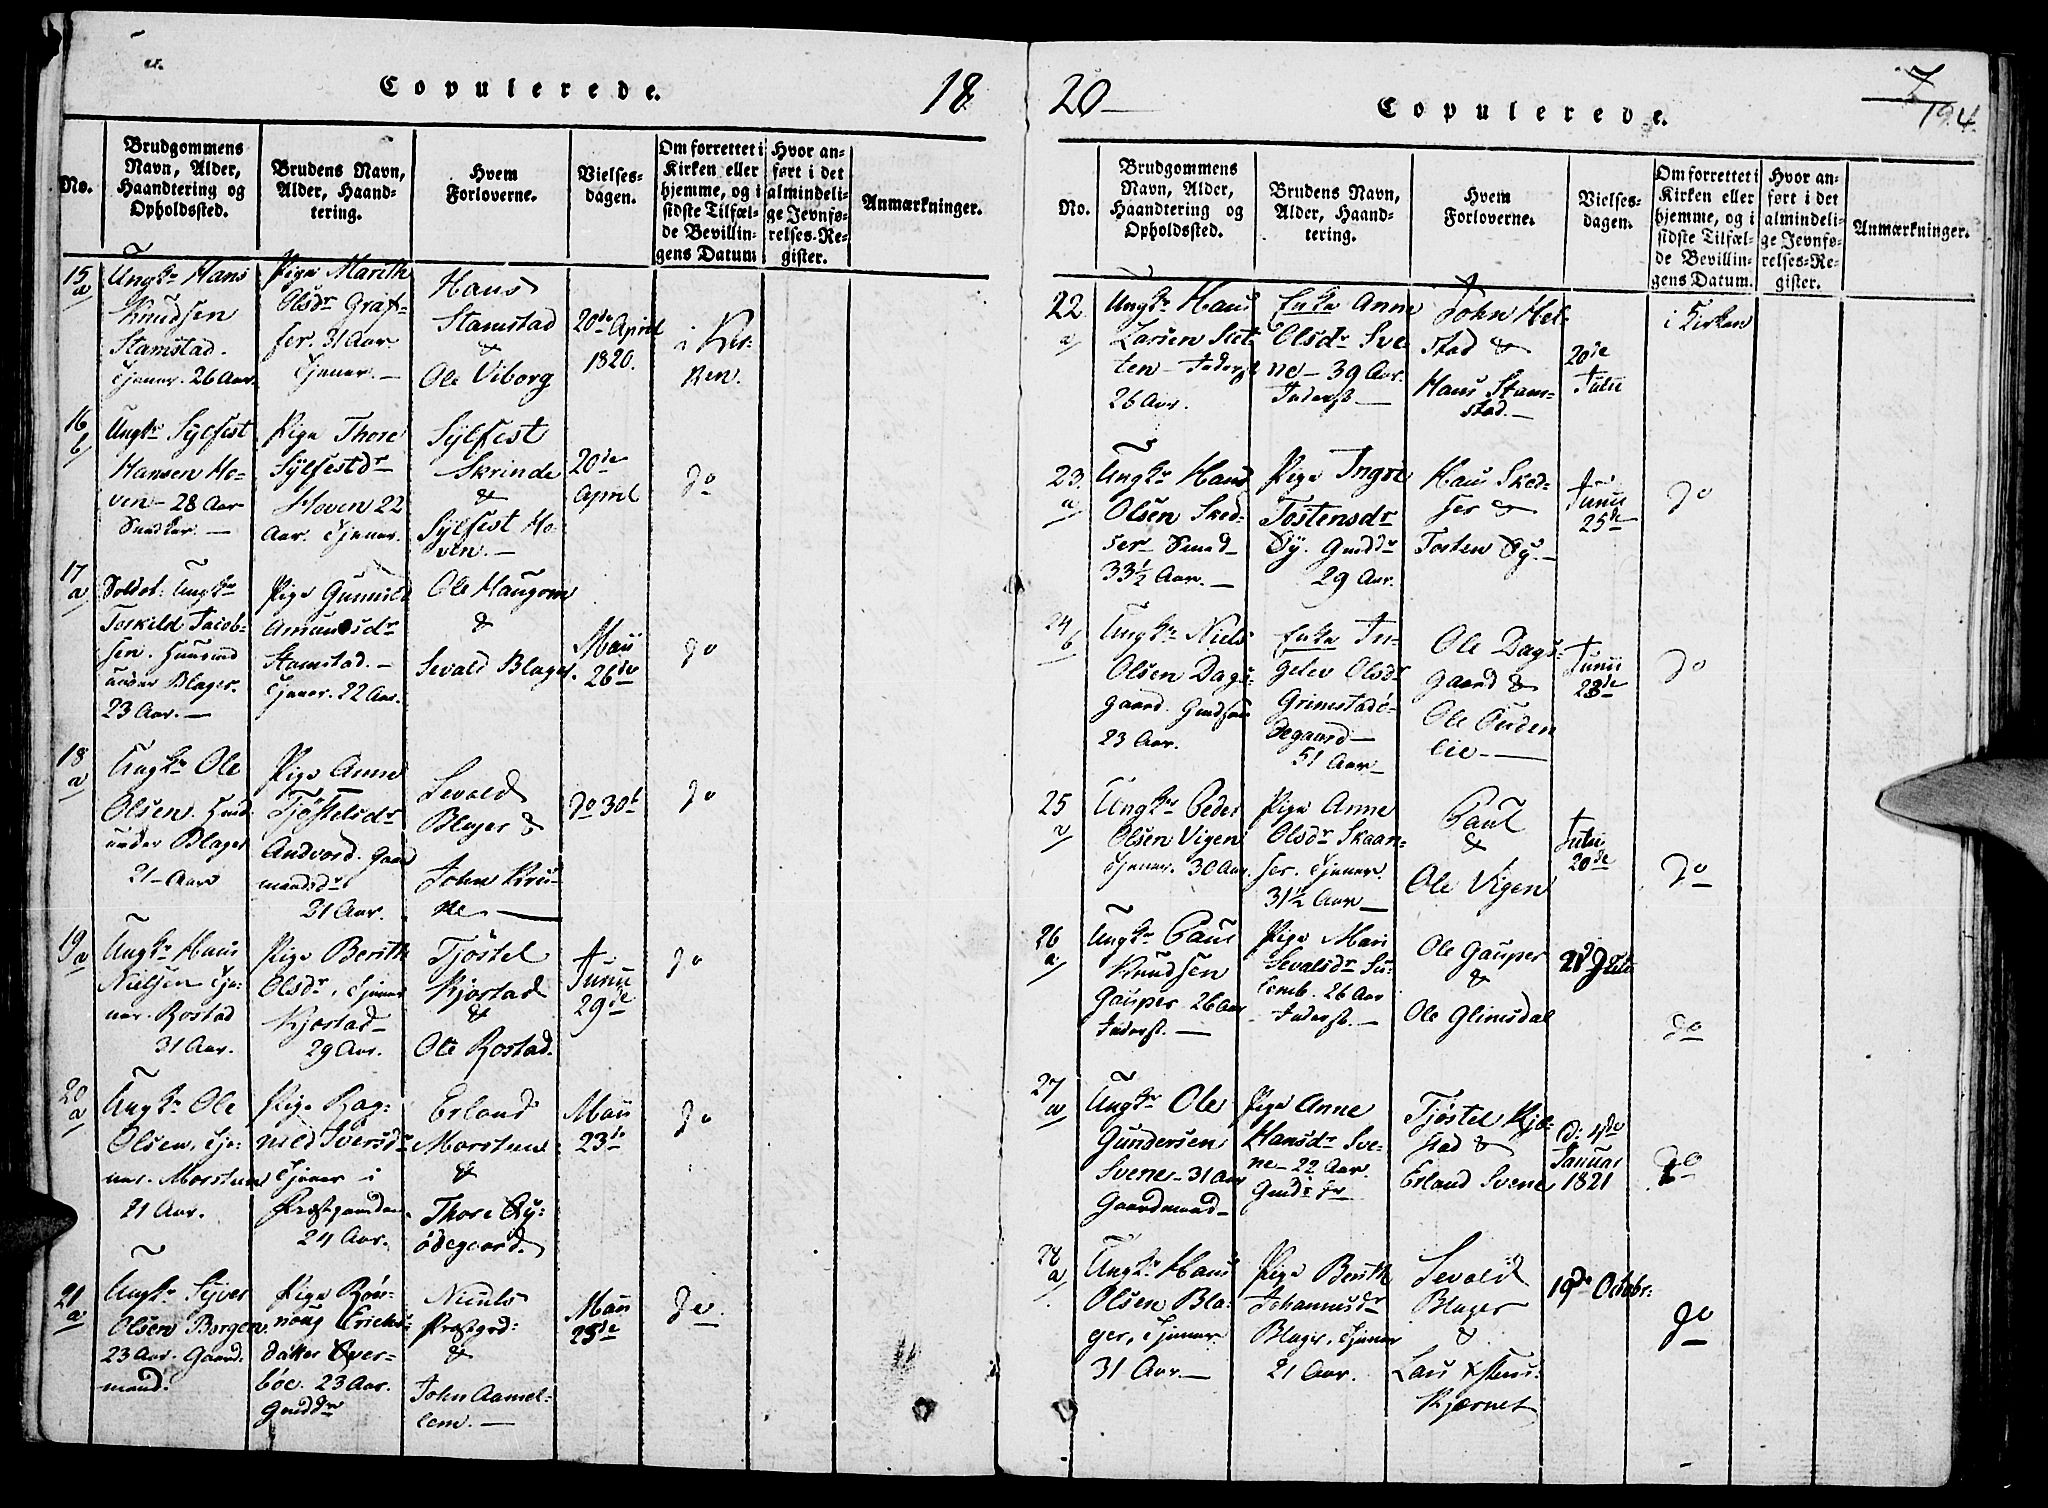 Copulerede.
18
No.
Brudgommens Navn, Alder, Haandtering og Opholdssted.
Brudens Navn, Alder, Haandtering.
Hvem Forloverne.
Vielsesdagen.
Om forrettet i Kirken eller hjemme, og i sidste Tilfælde Bevillingens Datum
Hvor anført i det almindelige Jevnførelses-Register.
Anmærkninger.
15
a
Ungkr Hans
Knudsen
Stamstad.
Tjener. 26 Aar
Pige Marith
Olsdr Graf-
fer. 31 Aar.
Tjener.
Hans
Stamstad
&
Ole Viborg
20de April
1820.
i Kir-
ken.
16
b
Ungkr Sylfest
Hansen Ho-
ven - 28 Aar
Snedker.
Pige Thore
Sylfestdr
Hoven 22
Aar. Tjener.
Sylfest
Skrinde
&
Sylfest Ho-
ven.
20de
April
do
17
a
Soldat: Ungkr
Torkild Jacob-
sen. Huusmd
under Blager.
23 Aar.
Pige Gunnild
Amundsdr
Stamstad.
Tjener. 22 Aar.
Ole Haugom
&
Sevald Blager.
Maii
26de
do
18
a
Ungkr Ole
Olsen.
under Blager
21 Aar
Pige Anne
Tjøstelsdr
Andvord. Gaard
mandsdr
21 Aar.
Sevald
Blager &
John Kru-
ke
do 30t
do
19
a
Ungkr Hans
Nielsen Tje-
ner. Rostad
31 Aar.
Pige Berith
Olsdr, Tjener
Kjøstad
29 Aar.
Tjøstel
Kjøstad
&
Ole Rostad.
Junii
29de
do
20
a
Ungkr Ole
Olsen, Tje-
ner. Morstuen
21 Aar.
Pige Rag-
nild Iversdr
Tjener i
Præstgaarden
24 Aar.
Erland
Morstuen
&
Thore Øy-
ødegaard.
Maii
23de
do
21
a
Ungkr Syver
Olsen Borgen
23 Aar. Gaard-
mand.
Pige Røn-
noug Erichs-
datter Øver-
boe. 23 Aar.
Gmddr
Niculs
Præstgrd:
&
John Aamel-
lem.
Maii
25de
do.
20
Copulerede.
7
194.
No.
Brudgommens Navn, Alder, Haandtering og Opholdssted.
Brudens Navn, Alder, Haandtering.
Hvem Forloverne.
Vielsesdagen.
Om forrettet i Kirken eller hjemme, og i sidste Tilfælde Bevillingens Datum.
Hvor anført i det almindelige Jevnførelses-Register.
Anmærkninger.
22
a
Ungkr Hans
Larsen Slet-
ten - Inderst
26 Aar.
Enke Anne
Olsdr Sve-
ne - 39 Aar.
Inderst
John Hel-
stad &
Hans Stam-
stad.
20de
Julii
i Kirken
23.
a
Ungkr Hans
Olsen Sked-
ser Smed
33½ Aar.
Pige Ingri
Tostensdr
Øy. Gmddr
29 Aar.
Hans Sked-
ser &
Tosten Øy.
Junii
25de
do
24
b
Ungkr Niels
Olsen Dags-
gaard.
23 Aar.
Enke In-
gelev Olsdr
Grimstadø-
degaard
51 Aar
Ole Dags-
gaard &
Ole Ouden
lie
Junii
28de
do
25
a
Ungkr Peder
Olsen Vigen
Tjener. 30 Aar.
Pige Anne
Olsdr Skaan-
ser. Tjener.
31½ Aar
Paul
&
Ole Vigen
Julii
20de
do
26
a
Ungkr Paul
Knudsen
Gauper 26 Aar
Inderst.
Pige Mari
Sevalsdr Su-
lemb. 26 Aar
Inderst.
Ole Gauper
&
Ole Glimsdal
do
27
a
Ungkr Ole
Gundersen
Svene - 31 Aar
Gaardmand
Pige Anne
Hansdr Sve-
ne - 22 Aar.
Tjøstel Kjø-
stad &
Erland Svene
d: 4de
Januar
1821
do
28
a
Ungkr Hans
Olsen Bla-
ger, Tjener
31 Aar
Pige Berith
Johannesdr
Blager, Tjener
21 Aar.
Sevald
Blager
&
Kjærnet
19de Octobr:
do